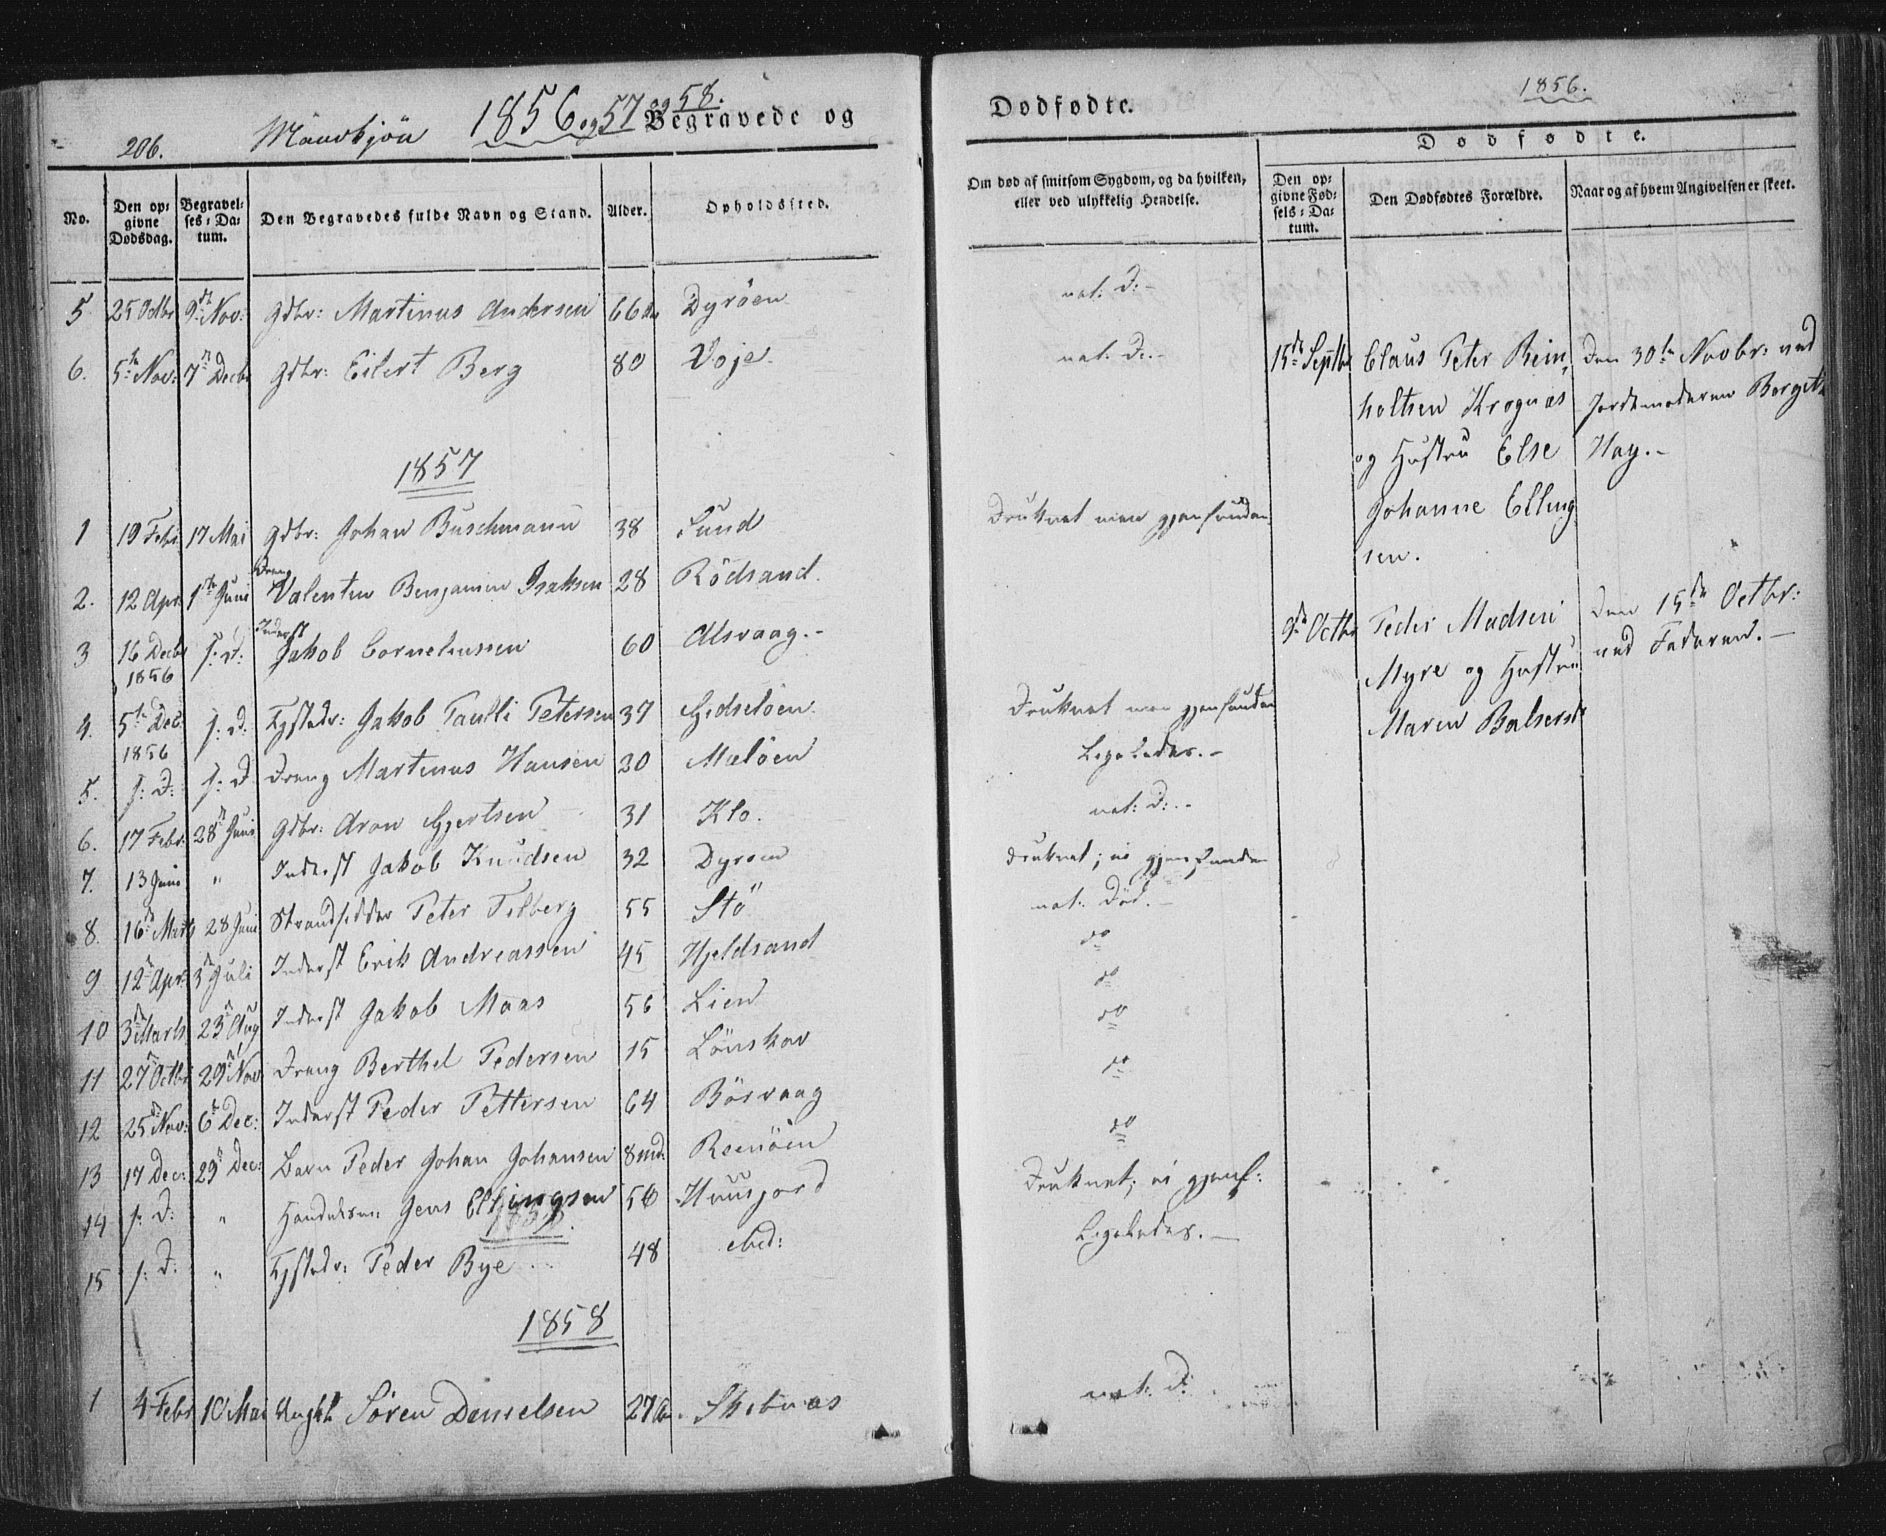 206.
Mandkjön
1856 og 57 og 58.
Begravede og
No.
Den opgivne Dødsdag.
Begravelses-Datum.
Den Begravedes fulde Navn og Stand.
Alder.
Opholdssted.
5 25 Octbr 9de Nov: Gdbr: Martinus Andersen 66 Aar Dyröen
6. 5te Nov: 7de Decbr Gdbr: Eilert Berg 80 Voje
1857
1 19 Febr. 17 Mai Gdbr: Johan Buschmann 38 Sund
2. 12 Apr. 1ste Juni Dreng Valentin Benjamin Isaksen 28 Rödsand.
3 16 Decbr 1856 s: D: Inderst Jakob Corneliussen 60 Alsvaag.-
4. 5te Dec: 1856 s: D. Jakob Paulli Petersen 37 Gidselöen
5. s: D: s: D Dreng Martinus Hansen 30 Melöen
6. 17 Febr. 28de Juni Gdbr: Aron Gjertsen 31 Klo.
7. 13 Juni " Inderst Jakob Knudsen 32 Dyröen
8. 16de Marts 28 Juni Strandsidder Peter Filberg 55 Stö
9 12te Apr: 3de Juli Inderst Erik Andreassen 45 Hjeldsand
10 3de Marts 23de Aug Inderst Jakob Maas 56 Lien
11 27de Octbr 29de Nov: Dreng Berthel Pedersen 15 Lönskov
12 25de Nov: 6te Dec: Inderst Peder Pettersen 64 Börvaag
13 17 Dec: 29de Dec: Barn Peder Johan Johansen 8 md: Reenöen
14 s: D: " Jens Ellingsen 56 Huusjord
1858
15 s: D: " Peder Bye 48 ibid:
1858
1 4 Febr 10 Mai Ungkl Sören Danielsen 27 Aar. Skibnæs
Dødfødte.
1856.
Om død af smitsom Sygdom, og da hvilken,
eller ved ulykkelig Hendelse.
Dødfødte.
Den opgivne Fødsels-Datum.
Den Dødfødtes Forældre.
Naar og af hvem Angivelsen er skeet.
nat: D.-
nat: D.-
Druknet men gjenfunden
Druknet men gjenfunden
Ligeledes.-
nat: D:.-
druknet; ei gjenfunden
nat: Död.-
do
do
do
do
do
Druknet; ei gjenf:
Ligeledes.-
nat: D:
15de Septbr Claus Peter Rein-
holtsen Krognæs
og Hustru Else
Johanne Elling
sen.
Den 30te Novbr: ved
Jordemoderen Berget
Hay.-
9de Octbr Peder Madsen
Myre og Hustru
Maren Balsersd
Den 15de Octbr:
ved Faderen.-